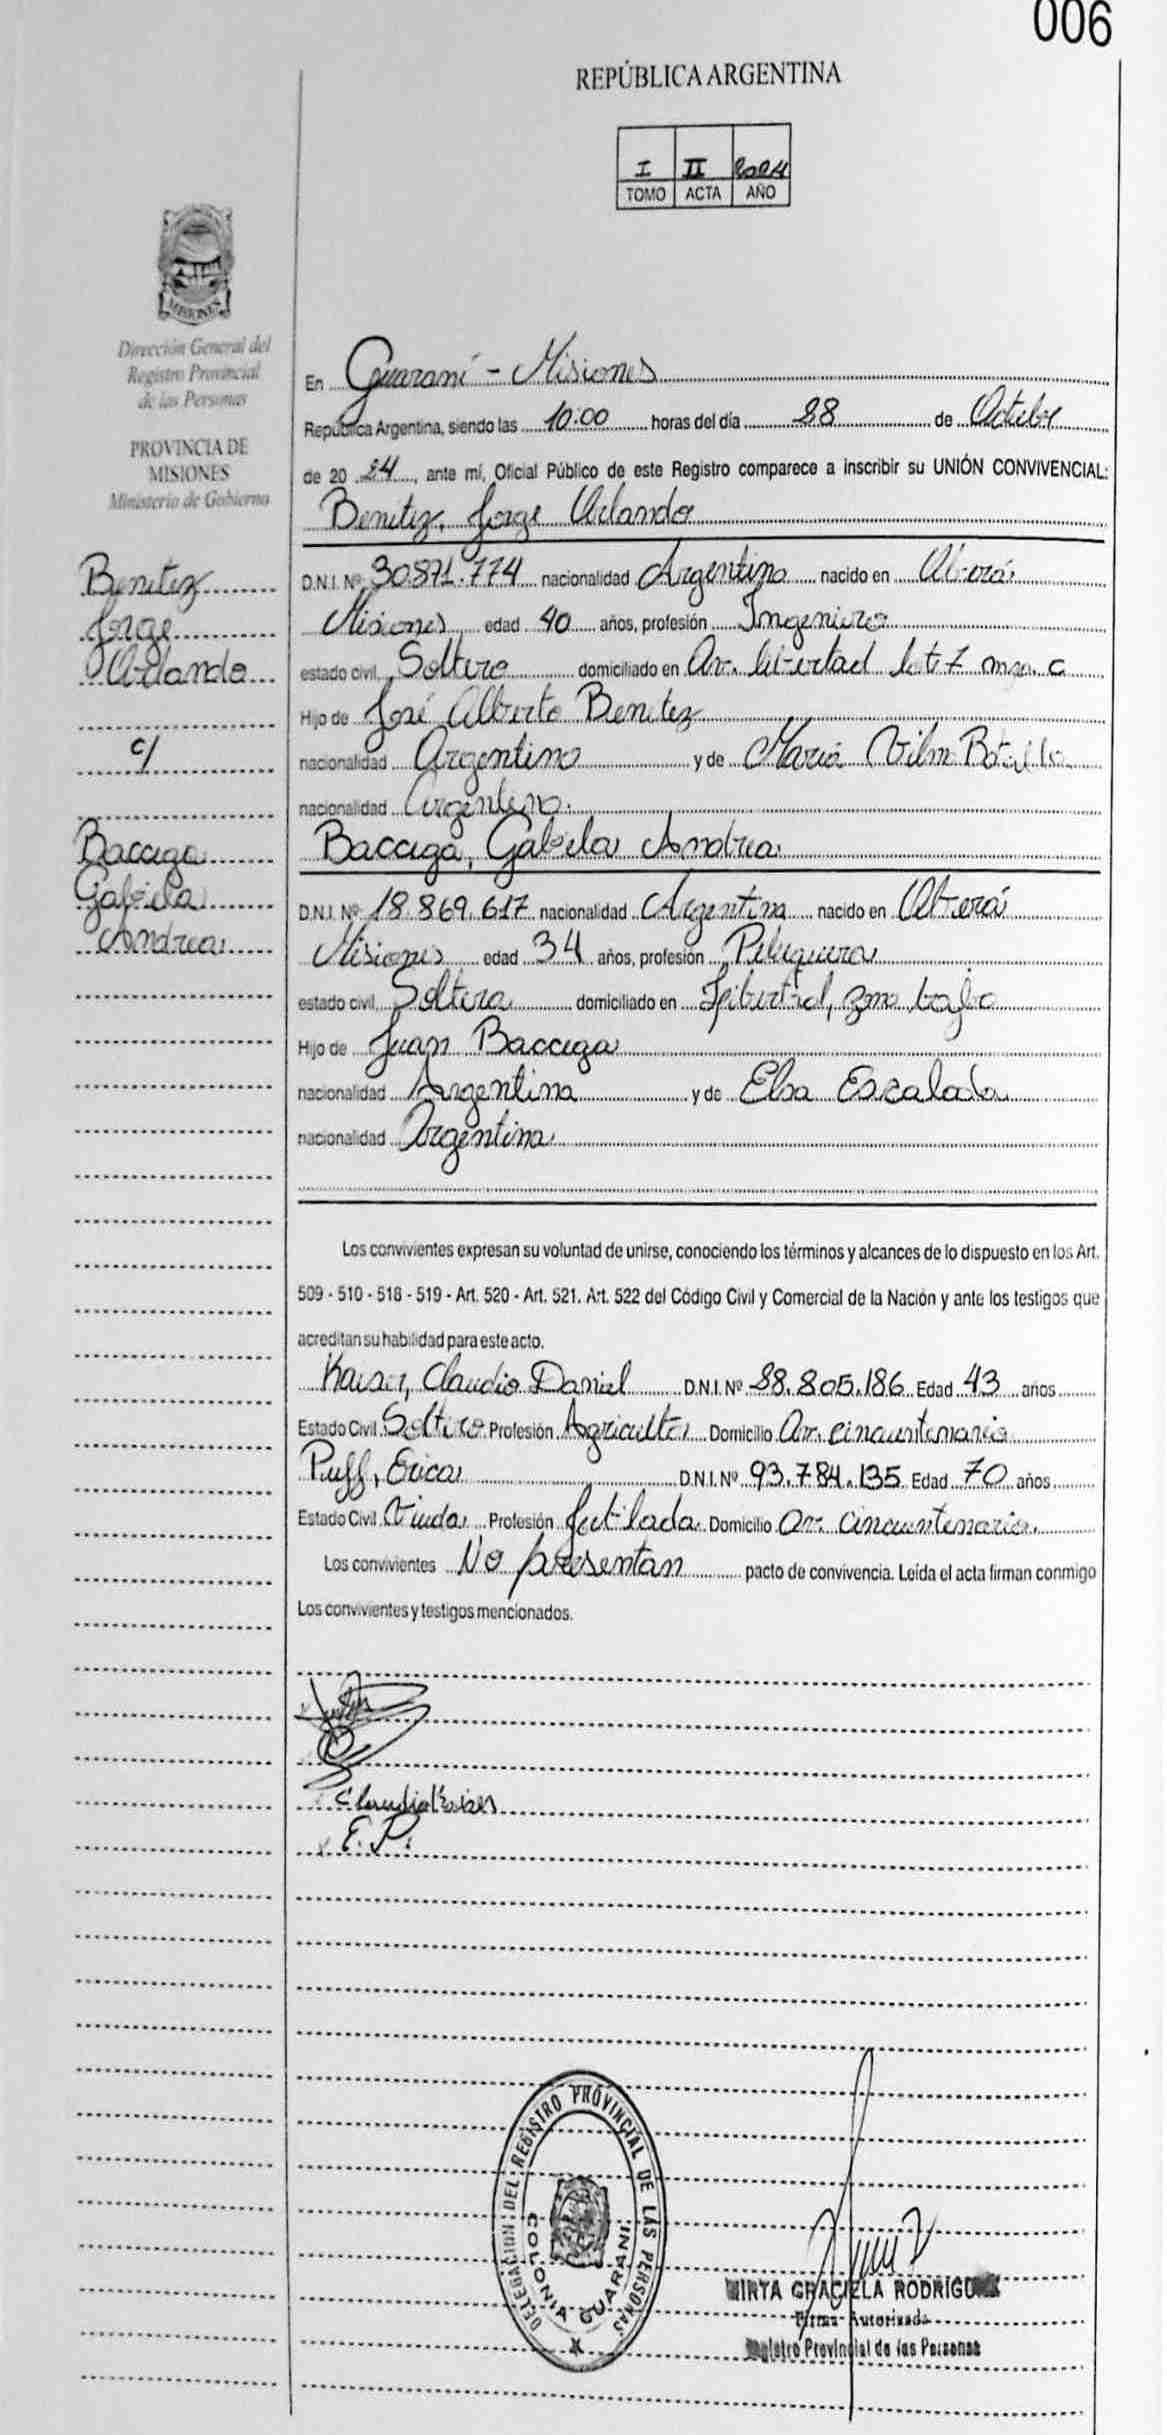 006
REPÚBLICA ARGENTINA
I II 2024
TOMO ACTA AÑO
MISIONES
Dirección General del
Registro Provincial
de las Personas
PROVINCIA DE
MISIONES
Ministerio de Gobierno
En Guaraní - Misiones
República Argentina, siendo las 10:00 horas del día 28 de Octubre
de 20 24, ante mí, Oficial Público de este Registro comparece a inscribir su UNIÓN CONVIVENCIAL:
Benitez, Jorge Orlando
Benitez
Jorge
Orlando
c/
Bacciga
Gabriela
Andrea
D.N.I. Nº 30.871.774 nacionalidad Argentina nacido en Oberá
Misiones edad 40 años, profesión Ingeniero
estado civil Soltero domiciliado en Av. libertad lote 7 mza. C
Hijo de José Alberto Benitez
nacionalidad Argentino y de María Vilma
nacionalidad Argentina.
Bacciga, Gabriela Andrea
D.N.I. Nº 18.869.617 nacionalidad Argentina nacido en Oberá
Misiones edad 34 años, profesión Peluquera
estado civil Soltera domiciliado en Libertad,
Hijo de Juan Bacciga
nacionalidad Argentina y de Elsa Escalada
nacionalidad Argentina
Los convivientes expresan su voluntad de unirse, conociendo los términos y alcances de lo dispuesto en los Art.
509 - 510 - 518 - 519 - Art. 520 - Art. 521. Art. 522 del Código Civil y Comercial de la Nación y ante los testigos que
acreditan su habilidad para este acto.
Kaiser, Claudio Daniel D.N.I. Nº 28.805.186 Edad 43 años
Estado Civil Soltero Profesión Agricultor Domicilio Av. cincuentenario
Puff, Erica D.N.I. Nº 93.784.135 Edad 70 años
Estado Civil Viuda Profesión Jubilada Domicilio Av. cincuentenario.
Los convivientes No presentan pacto de convivencia. Leída el acta firman conmigo
Los convivientes y testigos mencionados.
E. P.
DELEGACION DEL REGISTRO PROVINCIAL DE LAS PERSONAS
COLONIA GUARANI
MIRTA GRACIELA RODRIGUEZ
Firma Autorizada
Registro Provincial de las Personas